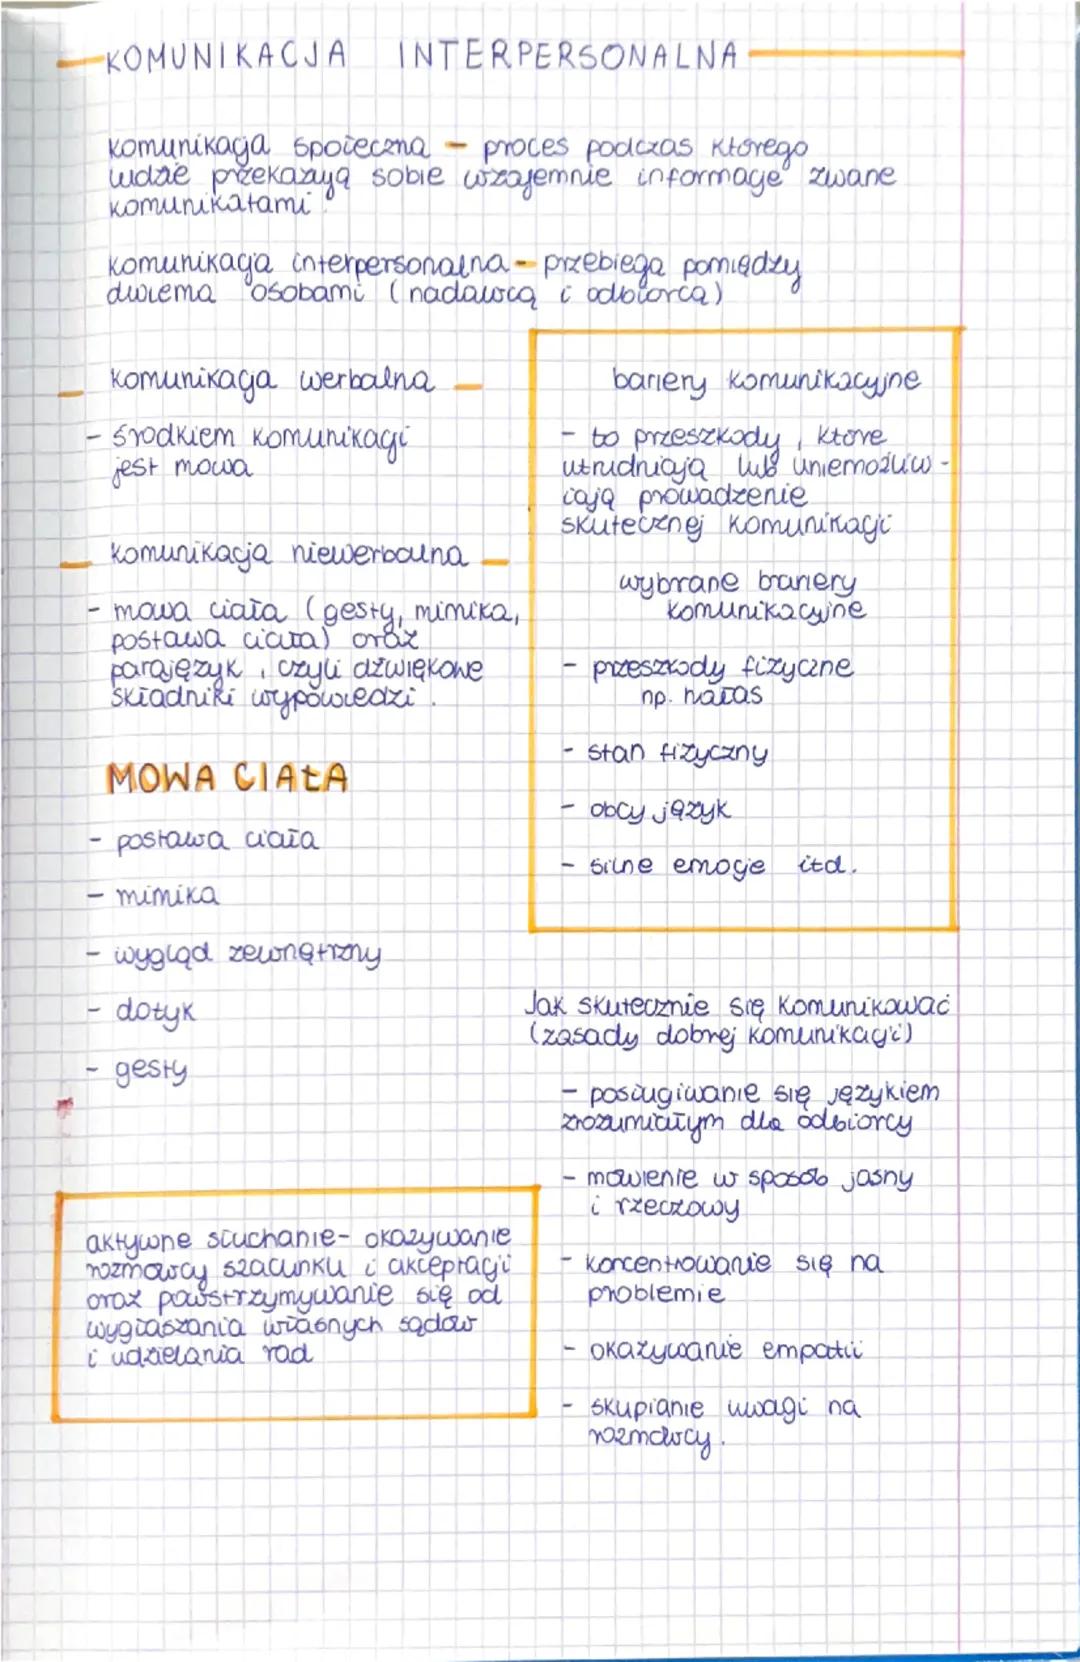 KOMUNIKACJA INTERPERSONALNA
komunikacja społeczna - proces podczas którego
ludzie przekazują sobie wzajemnie informacje zwane
komunikatami
komunikacja interpersonalna - przebiega pomiędzy
dwiema osobami (nadawcą i odbiorcą)
komunikacja werbalna -
- środkiem komunikacji
jest mowa
komunikacja niewerbalna -
- mowa ciała (gesty, mimika,
postawa ciała) oraz
parajęzyk, czyli dźwiękowe
składniki wypowiedzi.
MOWA CIAŁA
- postawa ciała
- mimika
- wygląd zewnętrzny
- dotyk
- gesty
aktywne słuchanie - okazywanie
rozmówcy szacunku i akceptacji
oraz powstrzymywanie się od
wygłaszania własnych sądów
i udzielania rad
bariery komunikacyjne
- to przeszkody, które
utrudniają lub uniemożliw-
iają prowadzenie
skutecznej komunikacji
wybrane bariery
komunikacyjne
- przeszkody fizyczne
np. hałas
- stan fizyczny
- obcy język
- silne emocje itd.
Jak skutecznie się komunikować
(zasady dobrej komunikacji)
- posługiwanie się językiem
zrozumiałym dla odbiorcy
- mówienie w sposób jasny
i rzeczowy
- koncentrowanie się na
problemie
- okazywanie empatii
- skupianie uwagi na
rozmówcy.